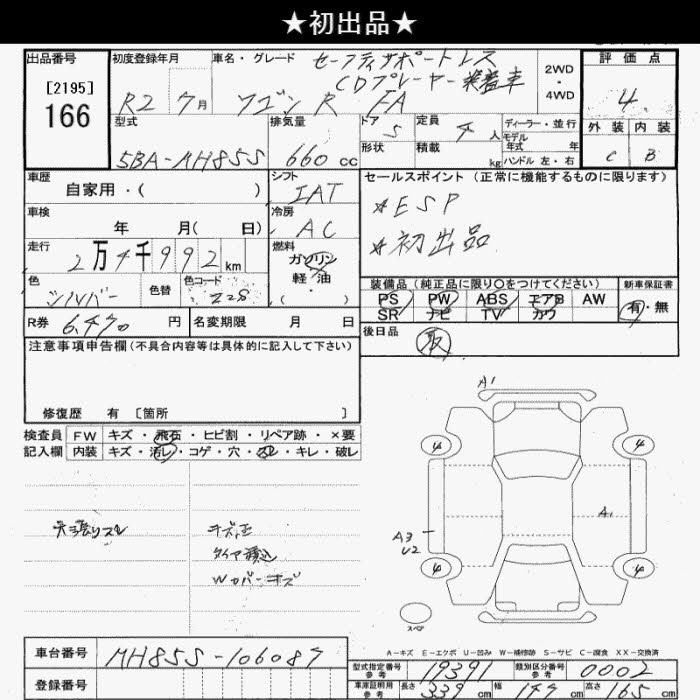 ★初出品★
出品番号
[2195]
166
初度登録年月
R2 7月
車名・グレード
セーフティサポートレス
CDプレーヤー装着車
ワゴンR FA
2WD
・
4WD
評価点
4
外装 内装
C B
型式
5BA-MH85S
排気量
660 cc
ドア
5
形状
定員
4人
積載
kg
ディーラー・並行
モデル
年式 年
ハンドル 左・右
車歴
自家用・( )
シフト
IAT
車検
年 月( 日)
冷房
AC
走行
2万4千992km
燃料
ガソリン
軽・油
・( )
色
シルバー
色替
色コード
Z2S
R券 6,470 円
名変期限 月 日
セールスポイント(正常に機能するものに限ります)
*ESP
*初出品
装備品(純正品に限り○をつけてください)
新車保証書
PS PW ABS エアB AW
SR ナビ TV カワ
有・無
後日品
取
注意事項申告欄(不具合内容等は具体的に記入して下さい)
修復歴 有 [箇所 ]
検査員
記入欄
FW キズ・飛石・ヒビ割・リペア跡・×要
内装 キズ・汚レ・コゲ・穴・スレ・キレ・破レ
天張りスレ
キズ
タイヤ積込
Wカバーキズ
A1
4 4
A1
A3
U2
4 4
スペア
A-キズ E-エクボ U-凹み W-補修跡 S-サビ C-腐食 XX-交換済
車台番号 MH85S-106087
登録番号
型式指定番号
参考
19391
類別区分番号
参考
0002
車庫証明用
参考
長さ 339 cm 幅 147 cm 高さ 165 cm